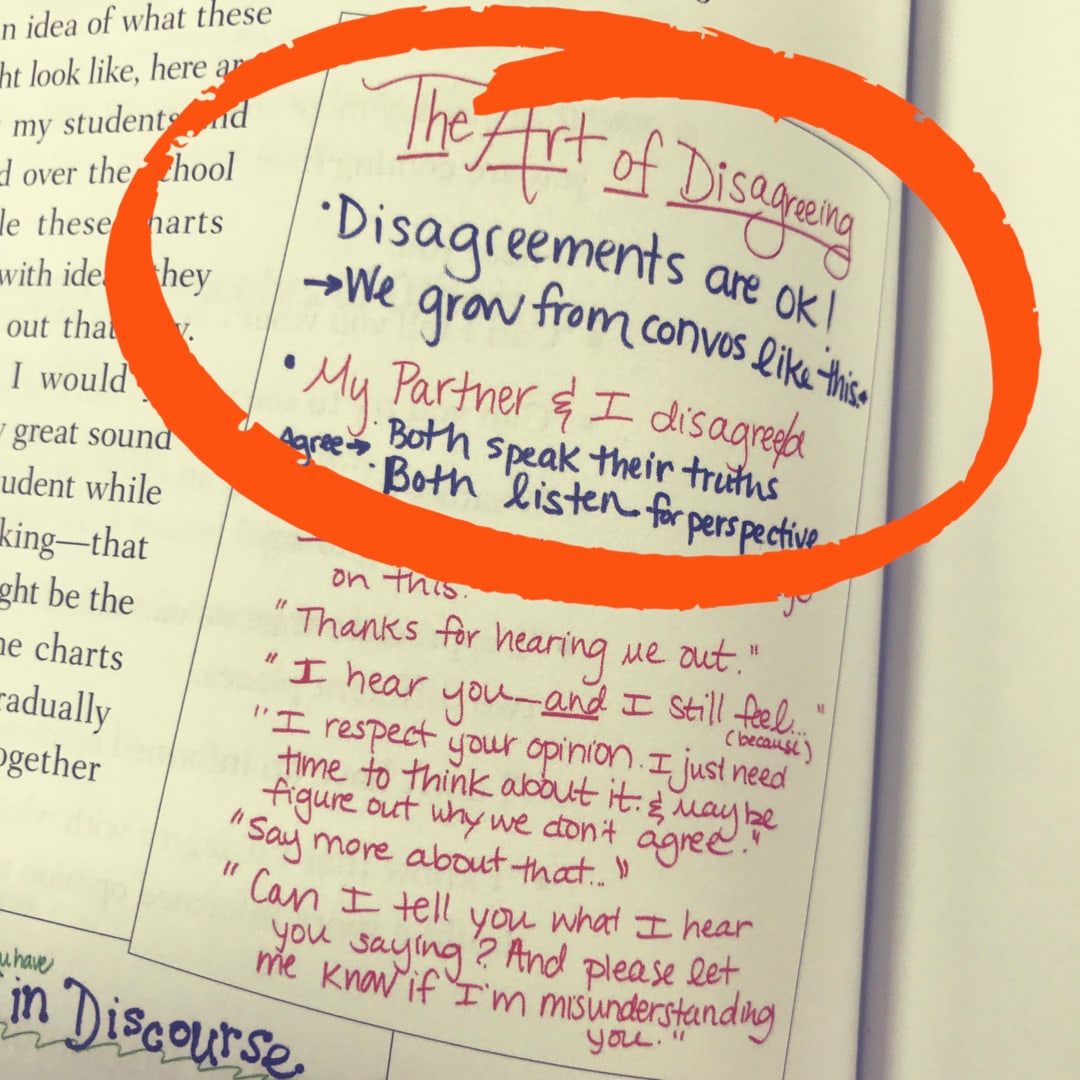 n idea of what these
ht look like, here ar
my students and
d over the school
le these charts
with idea they
out that
I would
great sound
udent while
king—that
ght be the
ne charts
radually
ogether
The Art of Disagreeing
·Disagreements are OK!
→We grow from convos like this.
• My Partner & I disagreed
Agree→ · Both speak their truths
· Both listen for perspective
on this.
"Thanks for hearing me out."
"I hear you—and I still feel..."
(because)
"I respect your opinion. I just need
time to think about it. & maybe
figure out why we don't agree."
"Say more about that..."
"Can I tell you what I hear
you saying? And please let
me know if I'm misunderstanding
you."
u have
in Discourse